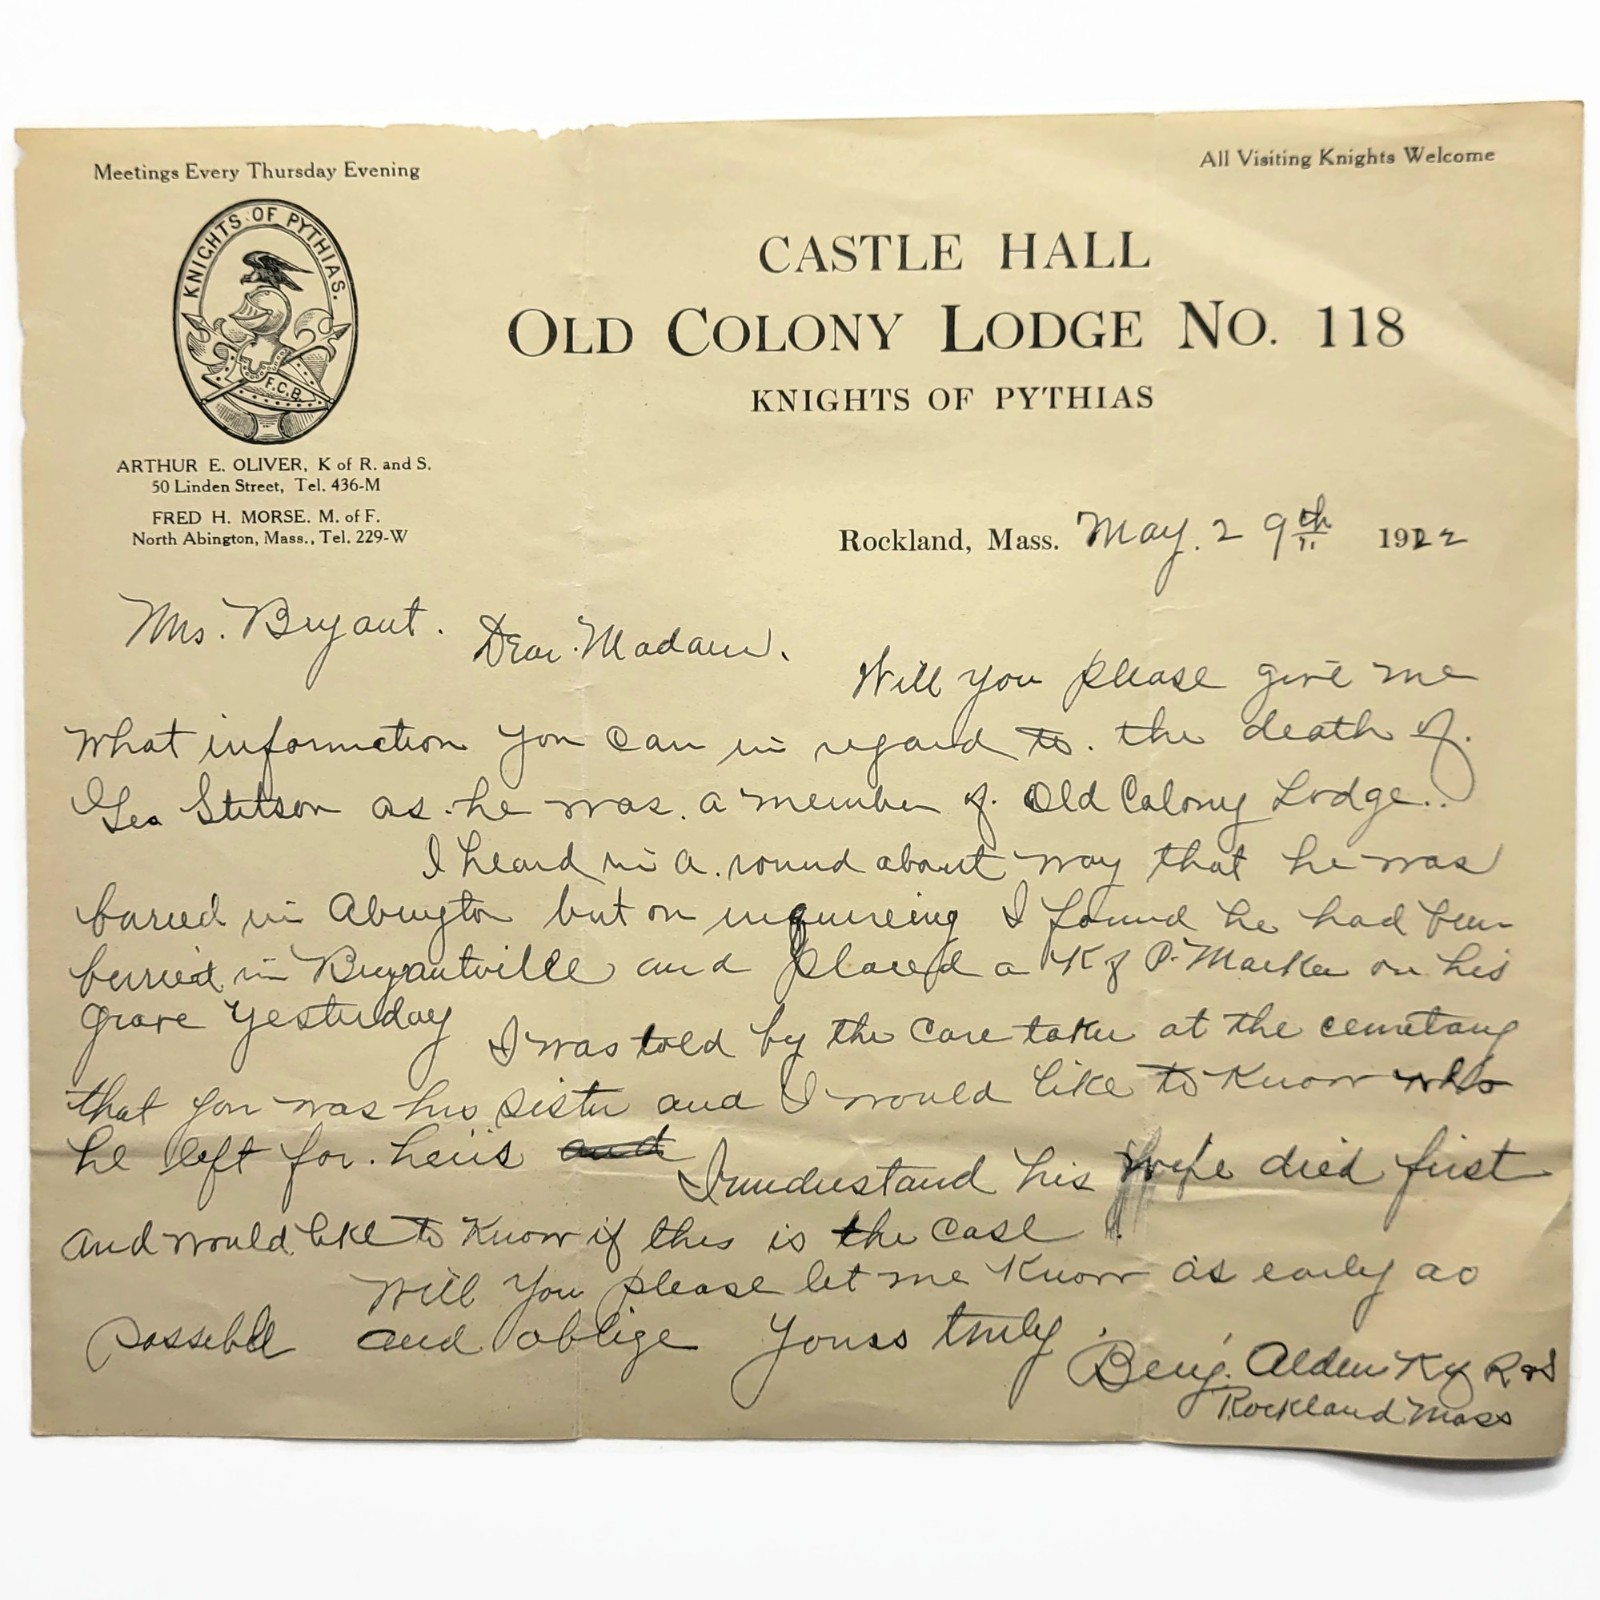 Meetings Every Thursday Evening
All Visiting Knights Welcome
KNIGHTS OF PYTHIAS.
F.C.B.
CASTLE HALL
OLD COLONY LODGE NO. 118
KNIGHTS OF PYTHIAS
ARTHUR E. OLIVER, K of R. and S.
50 Linden Street, Tel. 436-M
FRED H. MORSE. M. of F.
North Abington, Mass., Tel. 229-W
Rockland, Mass. May. 29th 1922
Mrs. Bryant.
Dear Madam.
Will you please give me
what information you can in regard to. the death of.
Geo Stetson as he was a member of. Old Colony Lodge..
I heard in a round about way that he was
buried in Abington but on inquireing I found he had been
burried in Bryantville and placed a K of P. Marker on his
grave yesterday
I was told by the care taker at the cemetary
that you was his sister and I would like to know who
he left for. heirs and
I understand his wife died first
and would like to know if this is the case.
Will you please let me know as early as
possible and oblige Yours truly.
Benj. Alden K of R & S
Rockland Mass